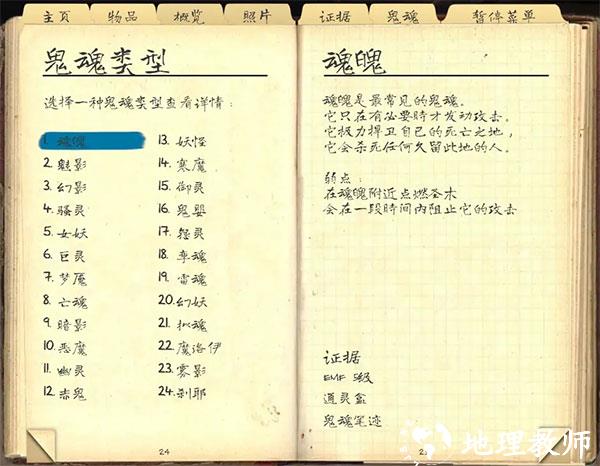 主页 物品 概览 照片 证据 鬼魂 暂停菜单
鬼魂类型
选择一种鬼魂类型查看详情：
1. 魂魄
2. 魅影
3. 幻影
4. 骚灵
5. 女妖
6. 巨灵
7. 梦魇
8. 亡魂
9. 暗影
10. 恶魔
11. 幽灵
12. 赤鬼
13. 妖怪
14. 寒魔
15. 御灵
16. 鬼婴
17. 怨灵
18. 孪魂
19. 雷魂
20. 幻妖
21. 拟魂
22. 魔洛伊
23. 雾影
24. 刹耶
24
魂魄
魂魄是最常见的鬼魂。
它只在有必要时才发动攻击。
它极力捍卫自己的死亡之地，
它会杀死任何久留此地的人。
弱点：
在魂魄附近点燃圣木
会在一段时间内阻止它的攻击
证据
EMF 5级
通灵盒
鬼魂笔迹
地理教师